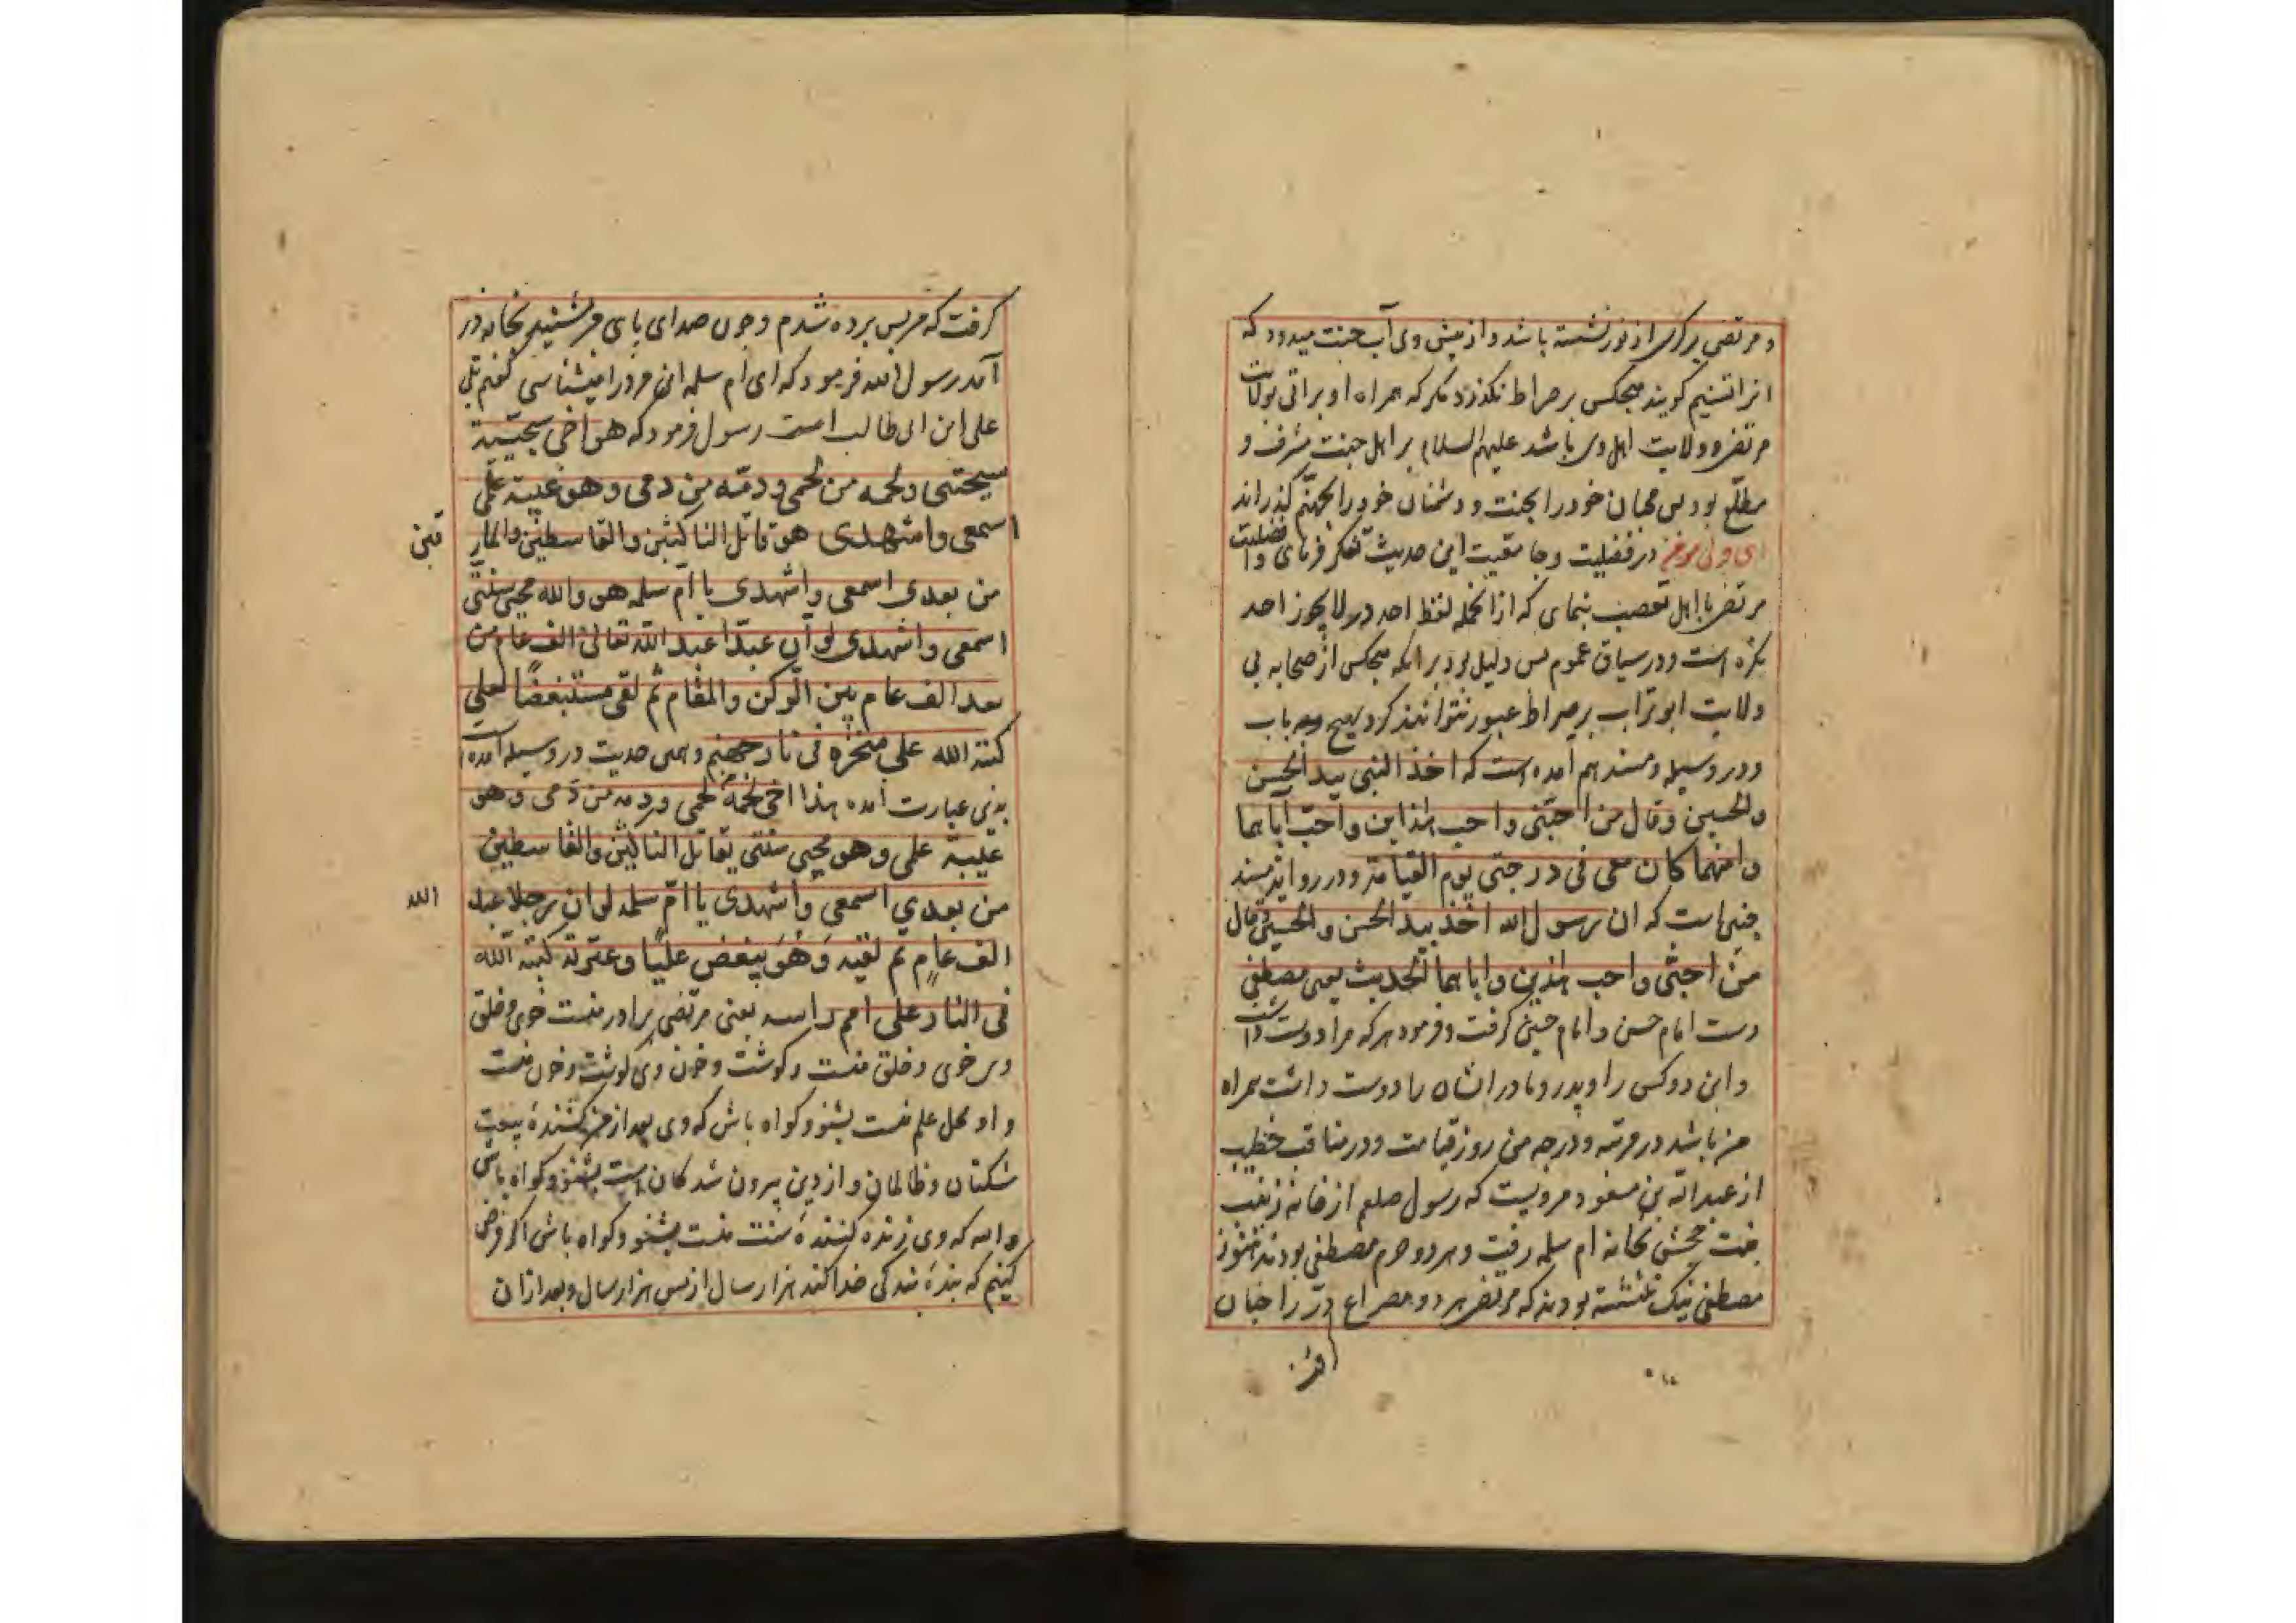 و مرتضی بر کرسی از نور نشسته باشد و از پیش وی آب جنت میرود که
انرا تسنیم کویند هیچکس بر صراط نکذرد مکر که همراه او براتی بولات
مرتضی و ولایت اهل وی باشد علیهم السلام بر اهل جنت مشرف و
مطلع بود پس محبان خود را بجنت و دشمنان خود را بجهنم کذراند
ای ولی مؤمن در فضیلت و جامعیت این حدیث تفکر فرمای و افضلیت
مرتضی با اهل تعصب بنمای که از انجمله لفظ احد در لا یجوز احد
نکره است و در سیاق عموم پس دلیل بود بر انکه هیچکس از صحابه بی
ولایت ابو تراب بر صراط عبور نتوانند کرد بهیچ باب
و در وسیله و مسند هم آمده است که اخذ النبی بید الحسن
والحسین و قال من احبنی واحب هذاین واحب اباهما
وامهما کان معی فی درجتی یوم القیامة و در روایت مسند
چنین است که ان رسول الله اخذ بید الحسن والحسین وقال
من احبنی واحب هذین واباهما الحدیث یعنی مصطفی
دست امام حسن و امام حسین کرفت و فرمود هر که مرا دوست داشت
و این دو کس را و پدر و مادر ایشان را دوست داشت همراه
من باشد در مرتبه و درجه من روز قیامت و در مناقب خطیب
از عبد الله بن مسعود مرویست که رسول صلعم از خانه زینب
بنت جحش بخانه ام سلمه رفت و هر دو حرم مصطفی بودند هنوز
مصطفی نیک ننشسته بودند که مرتضی هر دو مصراع در را چنان
کرفت که من پس برده شدم و چون صدای پای من شنید بخانه در
آمد رسول الله فرمود که ای ام سلمه این مرد را میشناسی کفتم بلی
علی ابن ابی طالب است رسول فرمود که هو اخی سجیته
سجیتی ولحمه من لحمی ودمه من دمی وهو عیبة علمی
اسمعی واشهدی هو قاتل الناکثین والقاسطین والمار قین
من بعدی اسمعی واشهدی یا ام سلمه هو والله محیی سنتی
اسمعی واشهدی لو ان عبدا عبد الله تعالی الف عام من
بعد الف عام بین الرکن والمقام ثم لقی مستبغضا لعلی
کبه الله علی منخره فی نار جهنم و همین حدیث در وسیله آمده
بدین عبارت آمده هذا اخی لحمه لحمی ودمه من دمی وهو
عیبة علمی وهو محیی سنتی یقاتل الناکثین والقاسطین
من بعدی اسمعی واشهدی یا ام سلمه لو ان رجلا عبد الله
الف عام ثم لقیه وهو یبغض علیا وعترته کبه الله
فی النار علی ام راسه یعنی مرتضی برادر منست خوی و خلق
وی خوی و خلق منست و کوشت و خون وی کوشت و خون منست
و او محل علم منست بشنو و کواه باش که وی بعد از من کشندهٔ بیعت
شکنان و ظالمان و از دین بیرون شدکان است بشنو و کواه باش
والله که وی زنده کنندهٔ سنت منست بشنو و کواه باش اکر فرض
کنیم که بندهٔ بندکی خدا کند هزار سال از پس هزار سال و بعد از ان